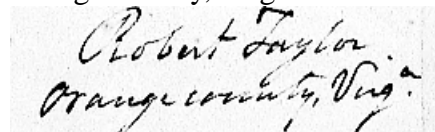 Robert Taylor
Orange county, Virgª.